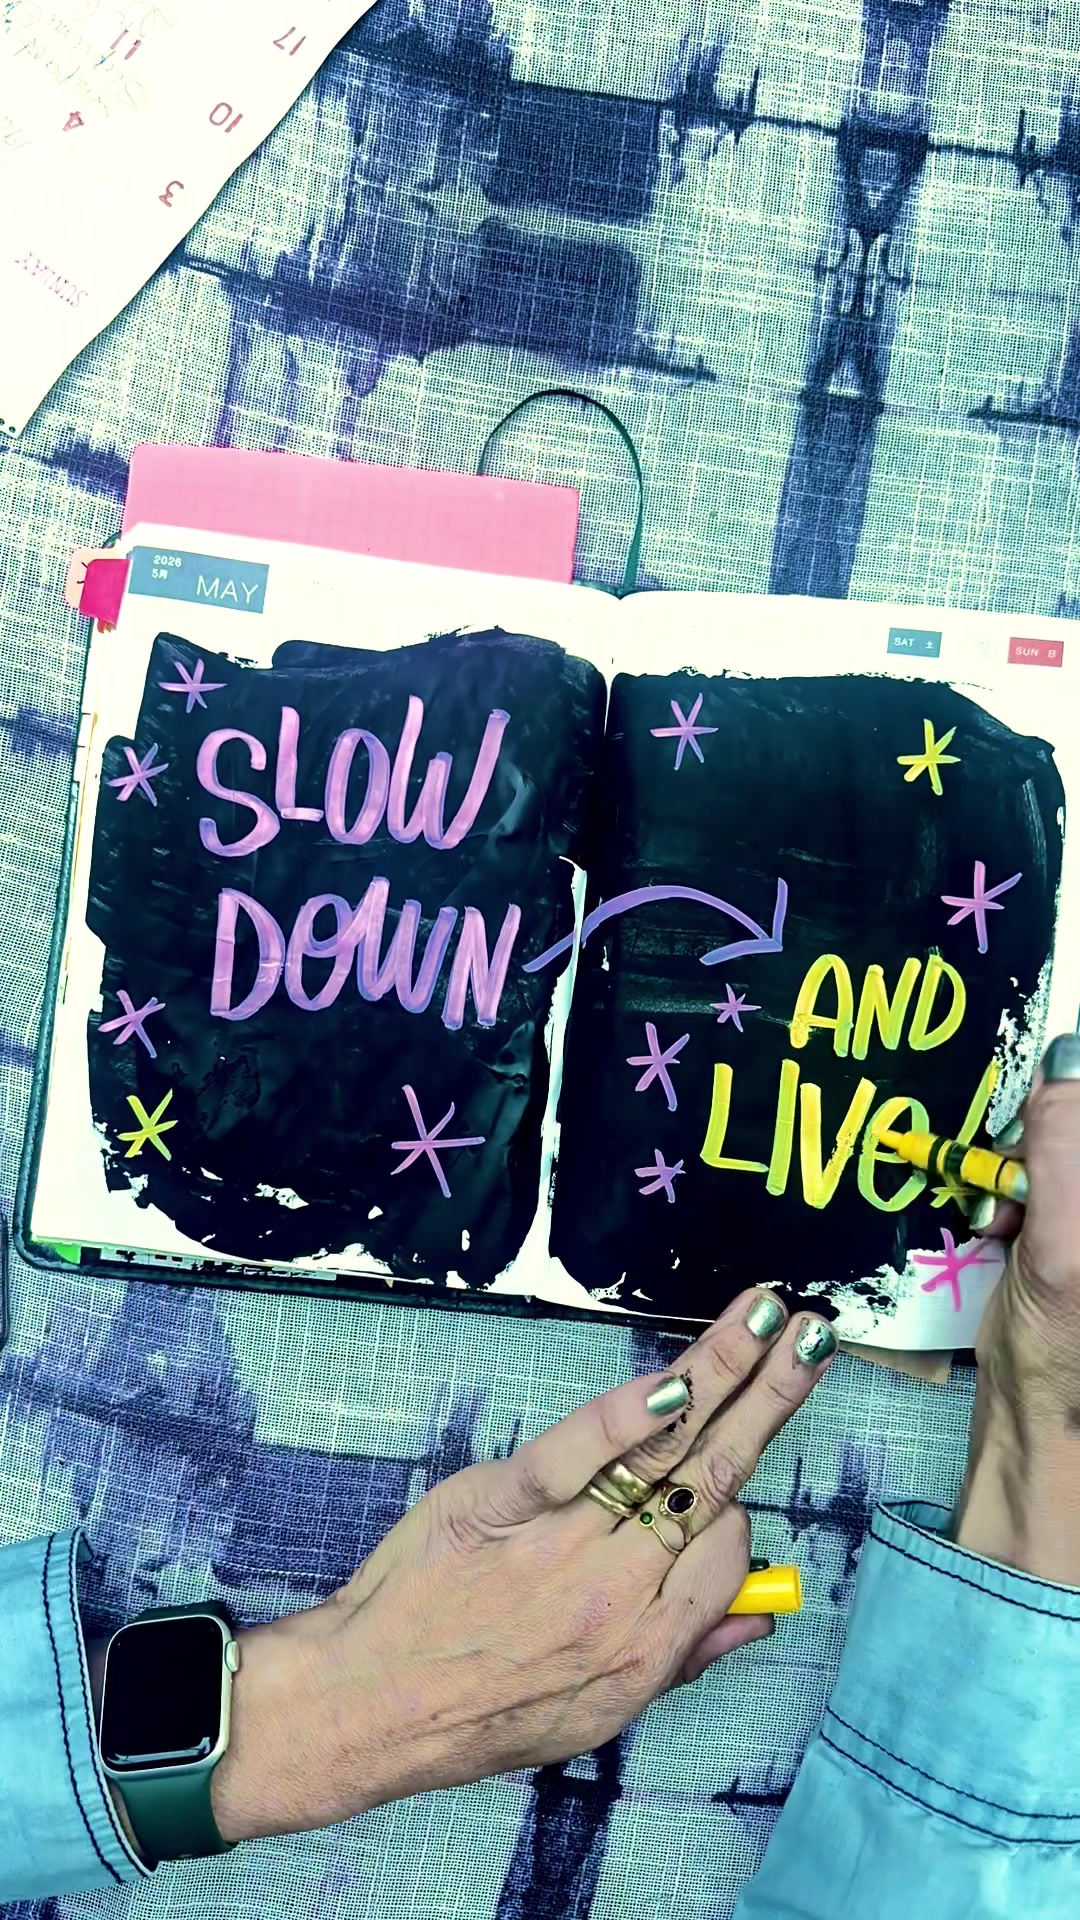 17
11
10
4
3
SUNDAY
2026
5月
MAY
SAT 土
SUN 日
SLOW
DOWN
AND
LIVE!